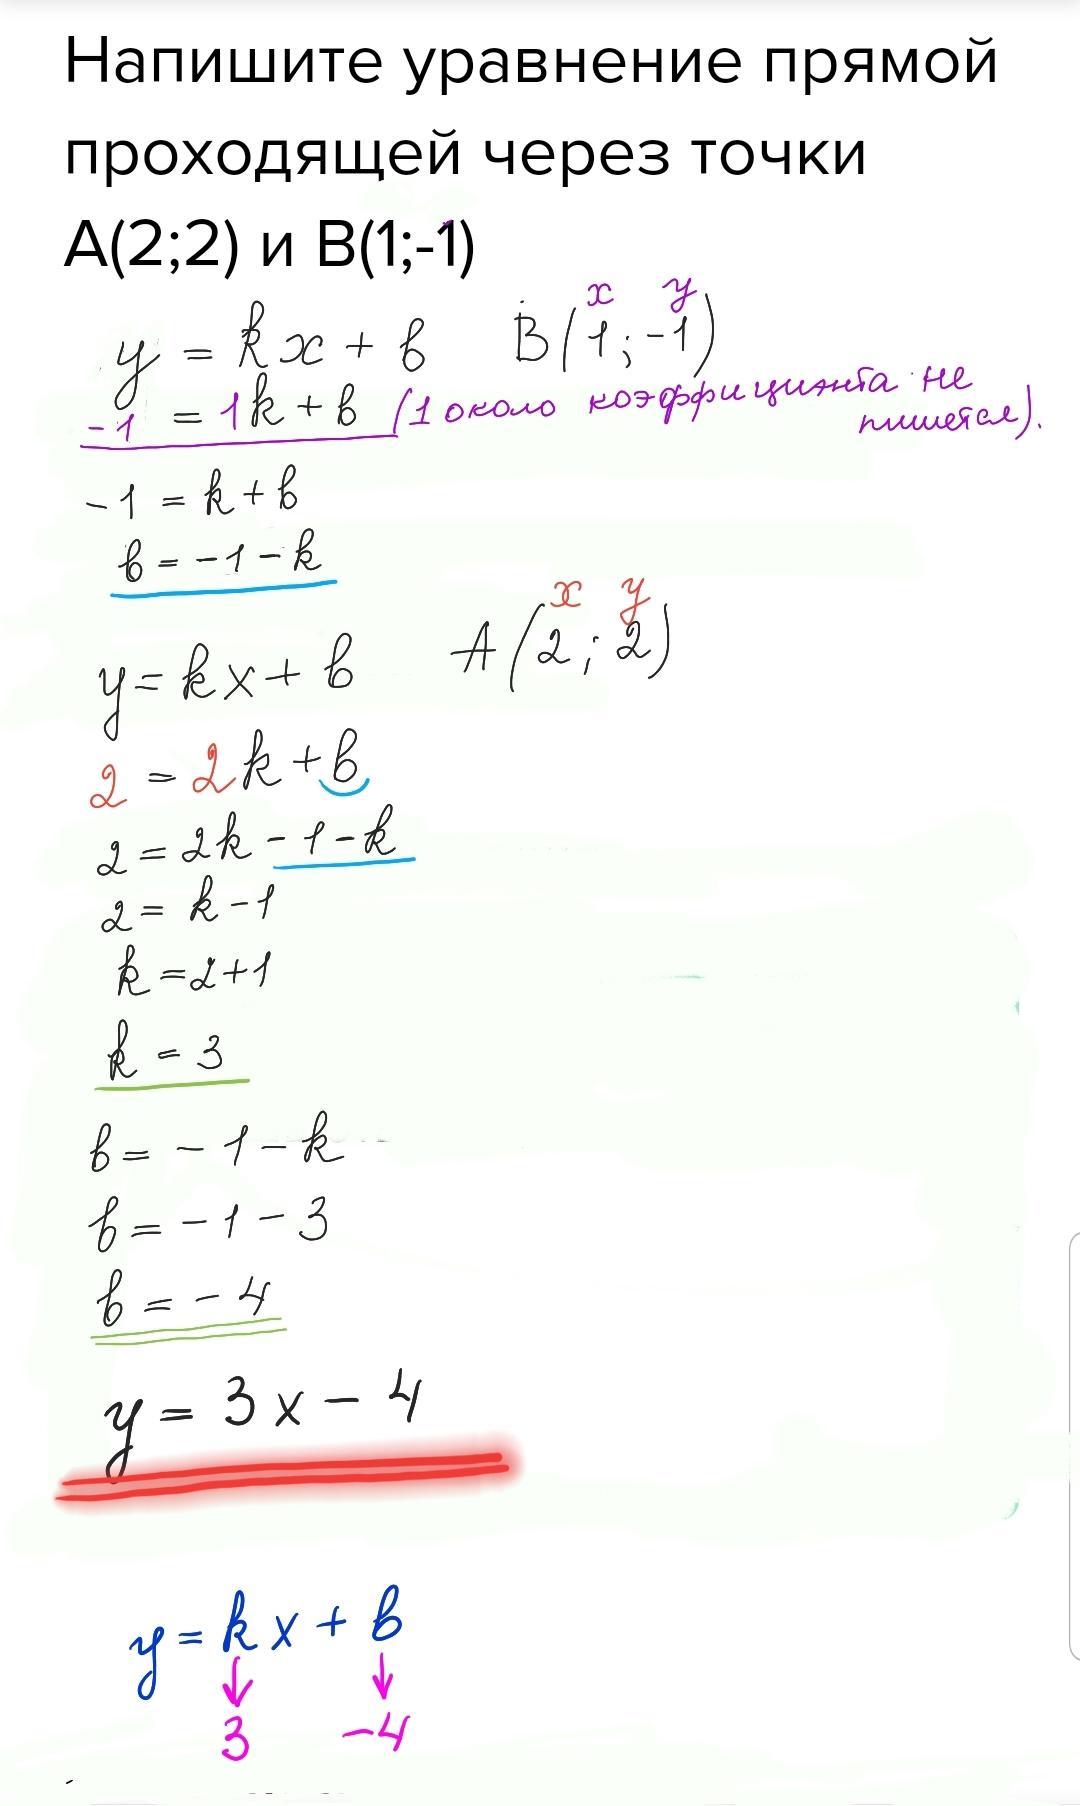 Напишите уравнение прямой
проходящей через точки
А(2;2) и В(1;-1)
x y
y = kx + b B(1;-1)
-1 = 1k + b (1 около коэффициянта не
пишется).
-1 = k + b
b = -1 - k
x y
y = kx + b A(2;2)
2 = 2k + b
2 = 2k - 1 - k
2 = k - 1
k = 2 + 1
k = 3
b = -1 - k
b = -1 - 3
b = -4
y = 3x - 4
y = kx + b
↓ ↓
3 -4